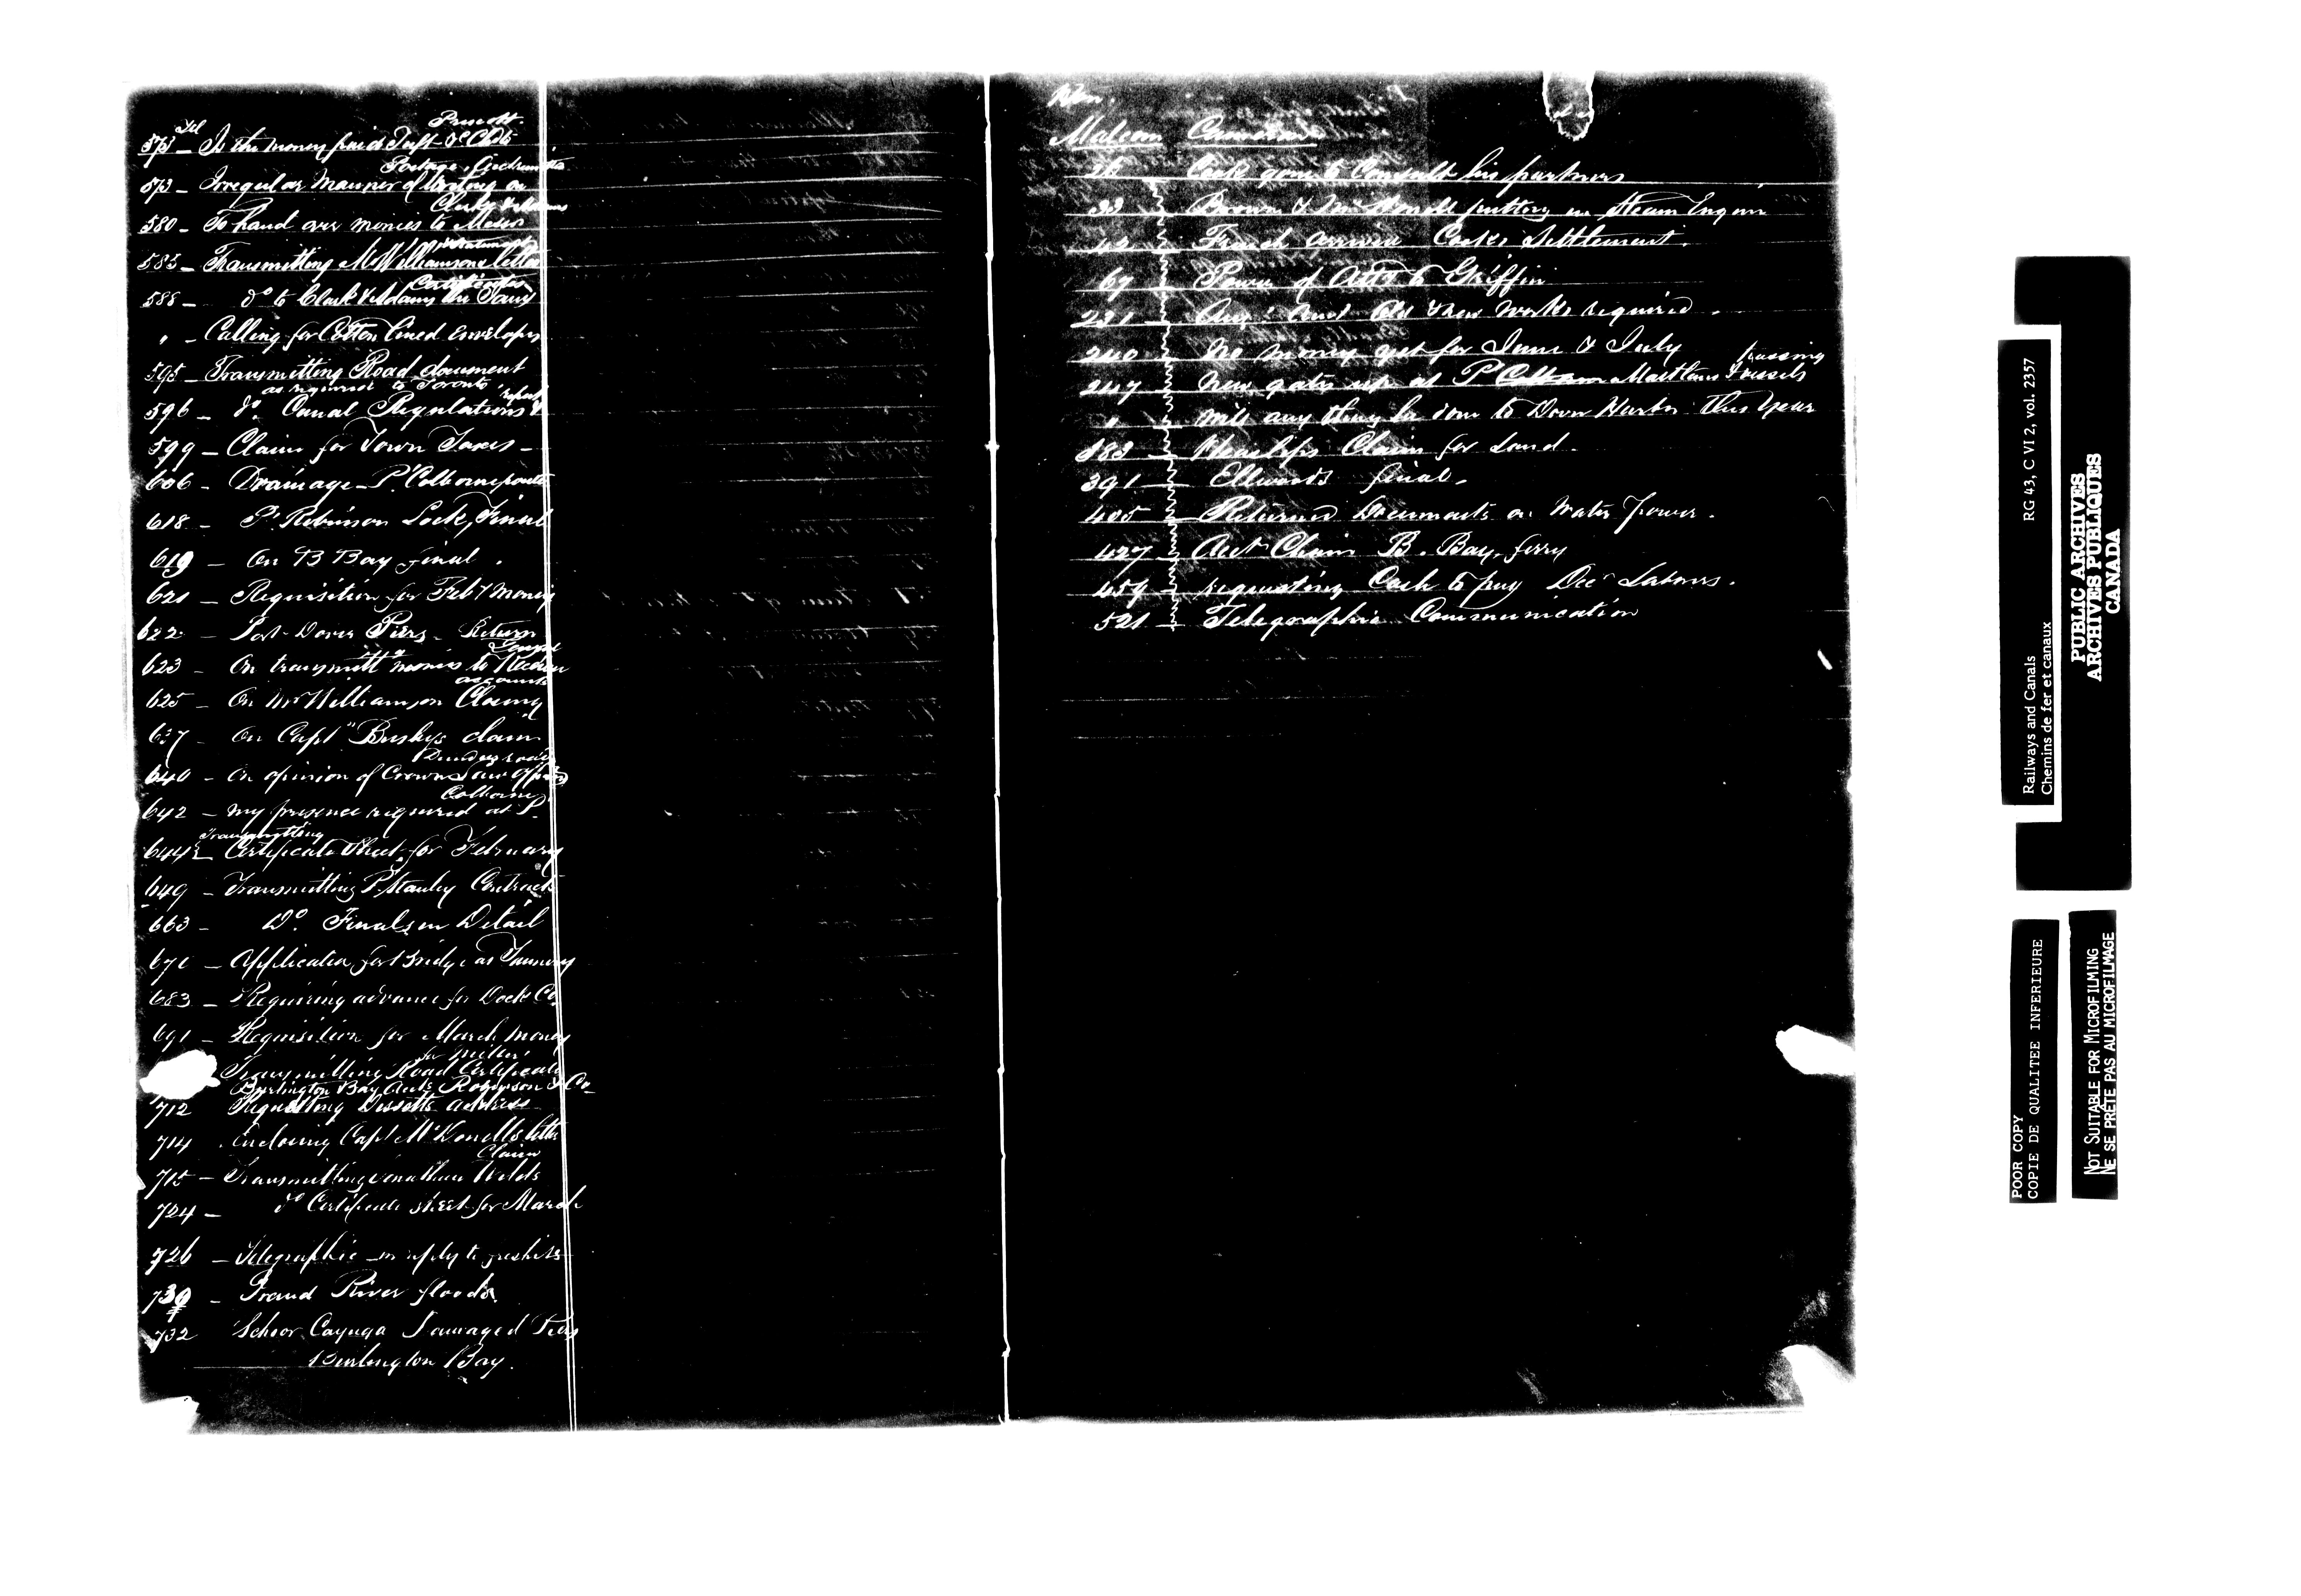 Prescott.
573 - Is the money paid Taft &
573 - Irregular Manner of on
Clark & Adams
580 - To hand over monies to Messrs
585 - Transmitting Mr Williamson letter
Certificates
588 - do to Clark & Adams
" - Calling for Cotton lined Envelopes
595 - Transmitting Road document
as required to Toronto report
596 - do. Canal Regulations &
599 - Claim for Town Taxes -
606 - Drainage - P. Colborne
618 - P. Robinson Lock, Final
619 - On B Bay final.
621 - Requisition for Feby Money
622 - Port Dover Piers - Return
623 - On transmitt monies to Receiver
accounts
625 - On Mr Williamson Closing
637 - On Capt Buskys claim
Dundas road
640 - On opinion of Crown Law Officers
Colborne
642 - my presence required at P.
Transmitting
644 - Certificate Sheet for February
649 - Transmitting P. Stanley Contracts
663 - Do. Finals in Detail
671 - Application for Bridge at Tannery
683 - Requiring advance for Dock Co.
691 - Requisition for March money
Transmitting Road Certificate
Burlington Bay Accts Robinson & Co -
712 Requesting address
714 . Enclosing Capt McDonells letter
Claim
715 - Transmitting Jonathan
724 - do Certificate sheet for March
726 - Telegraphic - in reply to
730 - Grand River floods.
732 Schoor Cayuga Damaged Piers
Burlington Bay.
Hon.
Malcom Cameron
25 - Cook gone to Consult his partners
33 - Brown & McDonell putting in Steam Engine
42 - French arrived Cooks Settlement.
67 - Power of Atty to Griffin
231 - Old & New Works required.
240 - No money yet for June & July
passing
247 - New gates up at P Maitland vessels
" - will any thing be done to Dover Harbor this year
383 - Claim for Land.
391 - Ellwoods final.
405 - Returned Documents on Water power.
427 - Acct Chain B. Bay, ferry
459 - requesting Cash to pay Decr Labours.
521 - Telegraphic Communication
Railways and Canals RG 43, C VI 2, vol. 2357
Chemins de fer et canaux
PUBLIC ARCHIVES
ARCHIVES PUBLIQUES
CANADA
POOR COPY
COPIE DE QUALITEE INFERIEURE
NOT SUITABLE FOR MICROFILMING
NE SE PRÊTE PAS AU MICROFILMAGE